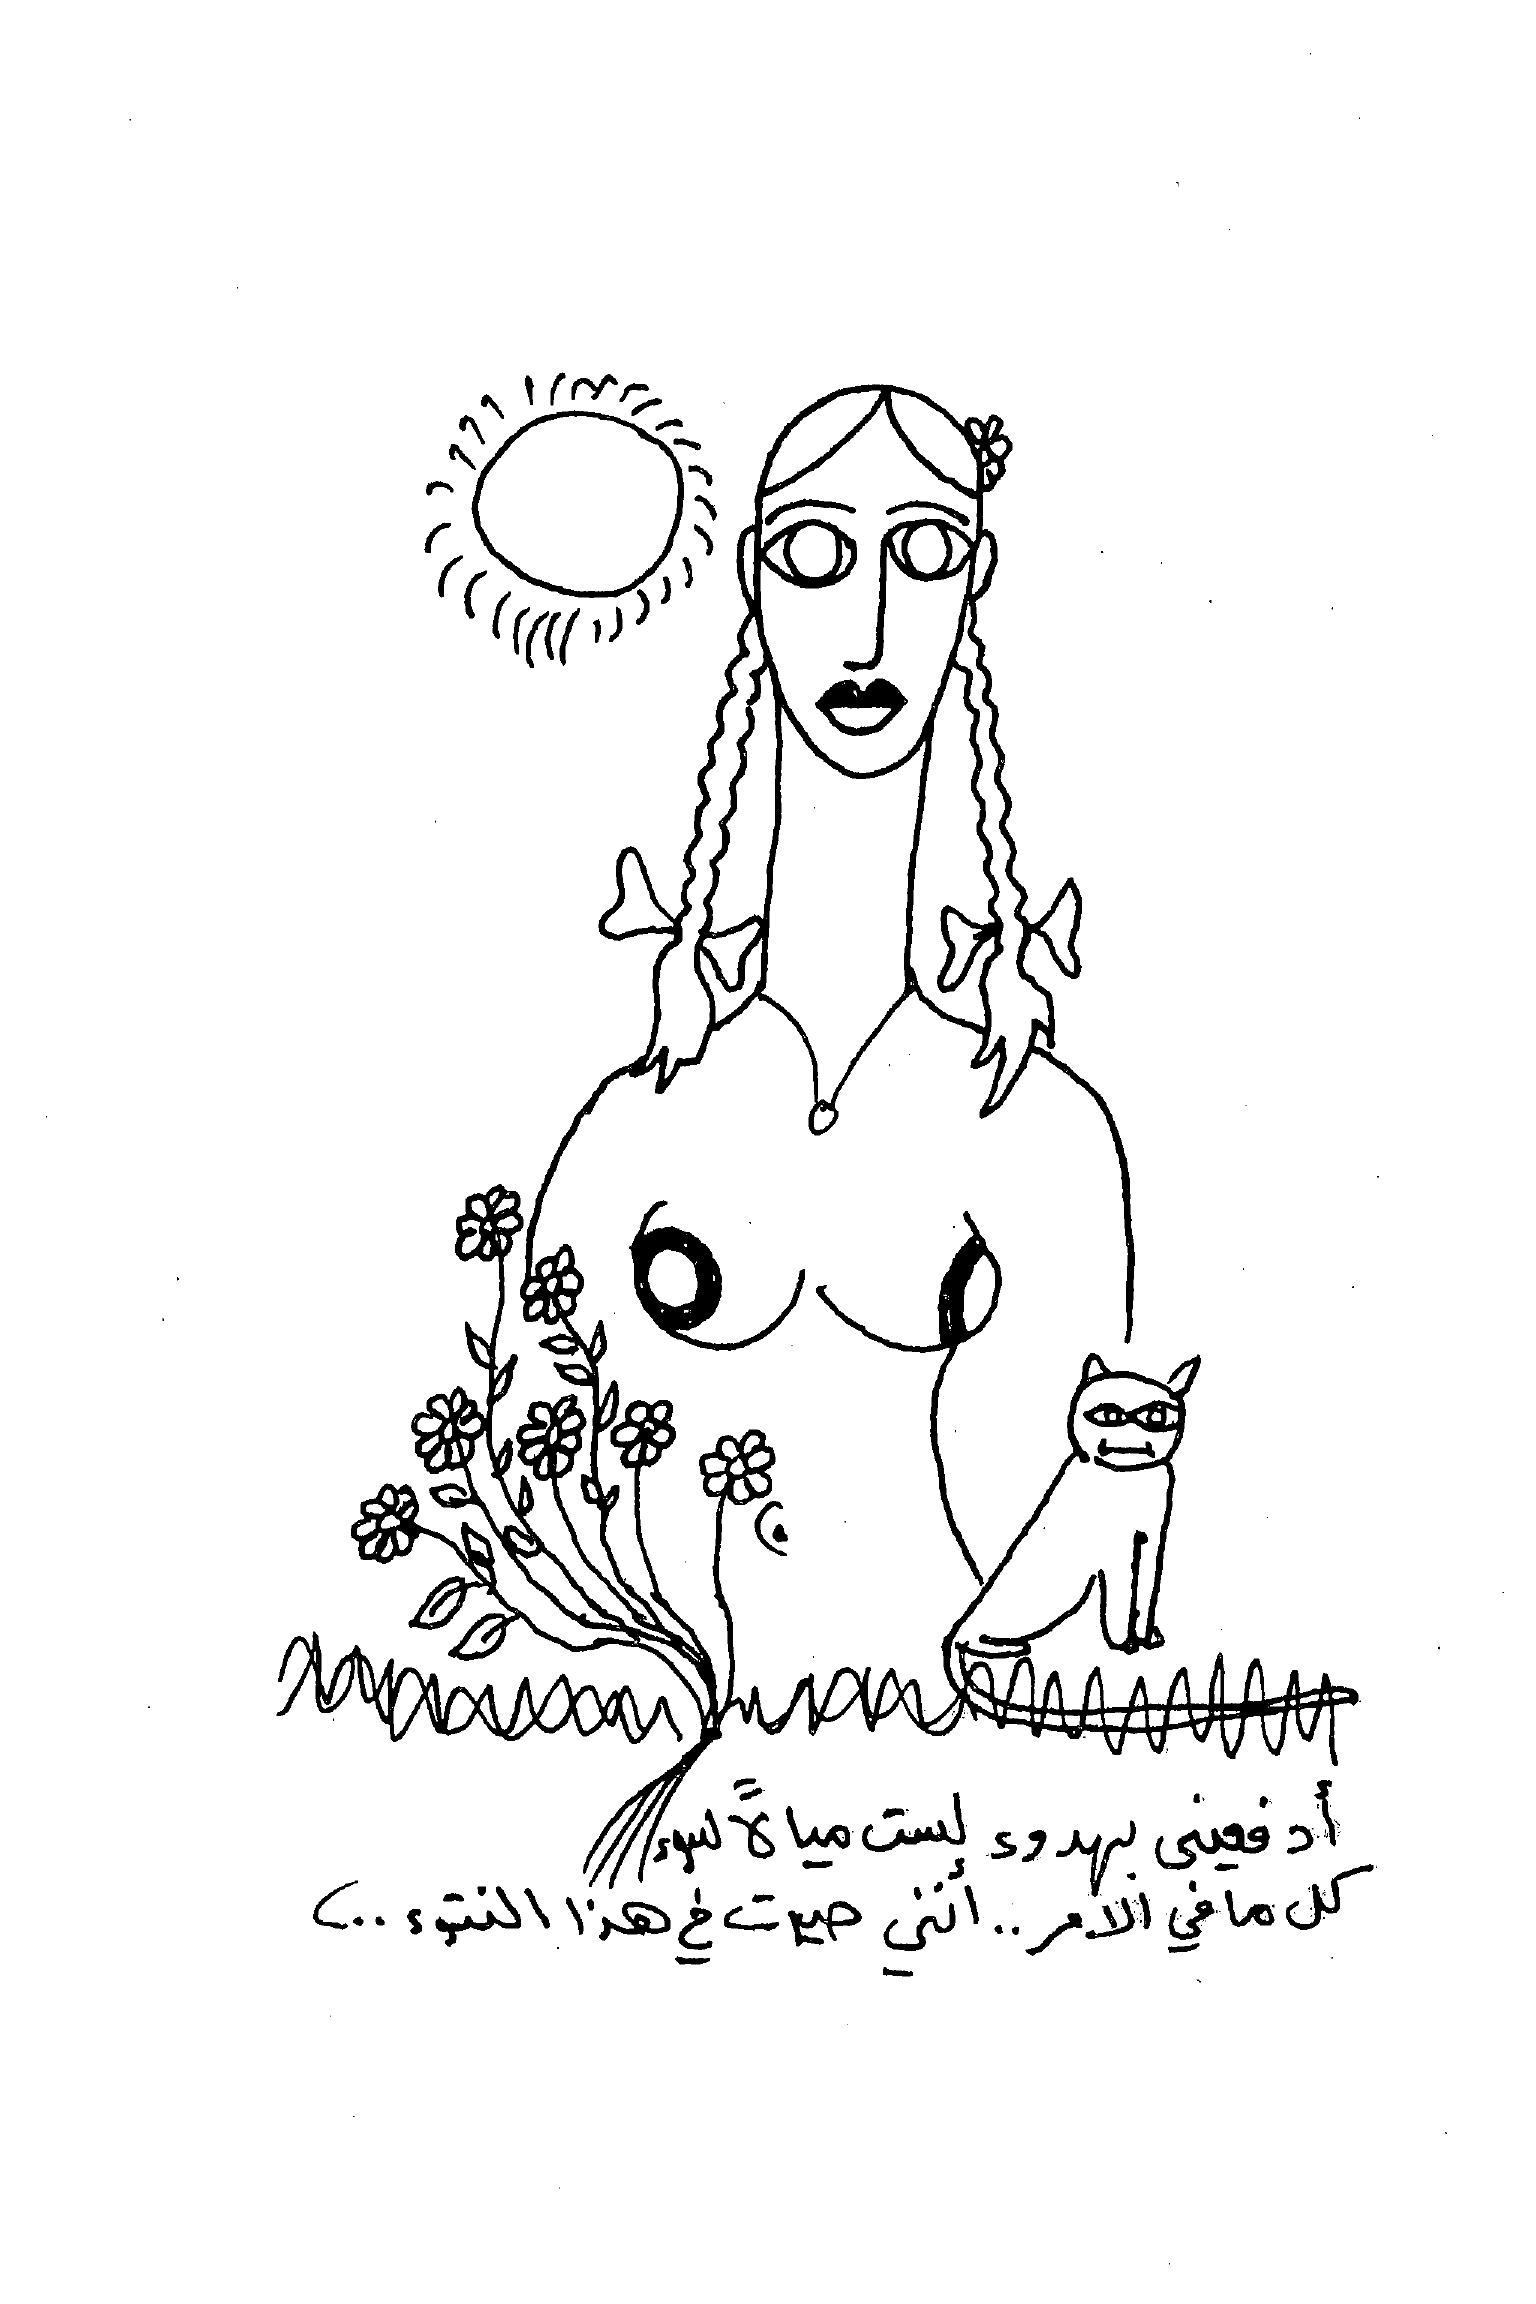 أدفعيني بهدوء لست ميالاً لسوء
كل ما في الأمر.. أنني صرت في هذا النتوء..